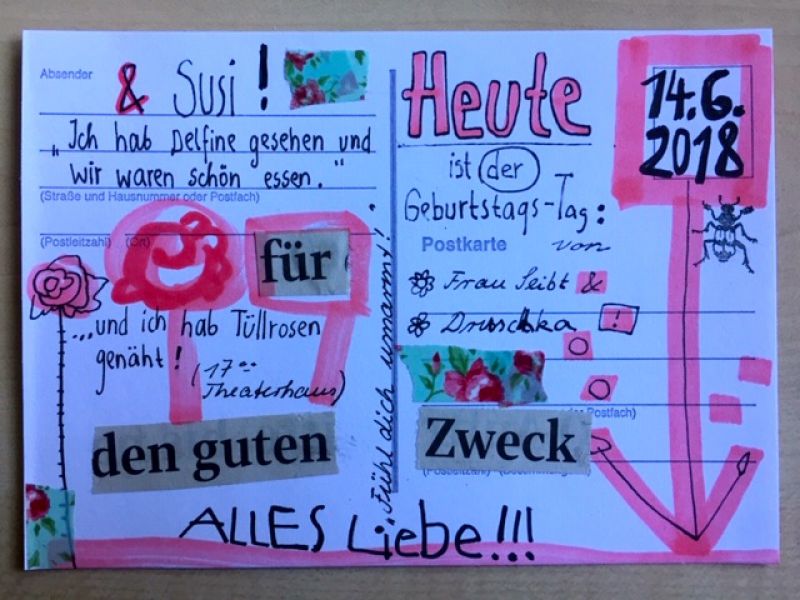 Absender
& Susi!
"Ich hab Delfine gesehen und
wir waren schön essen."
(Straße und Hausnummer oder Postfach)
(Postleitzahl) (Ort)
für
...und ich hab Tüllrosen
genäht!
(17°°
Theaterhaus)
den guten
"Fühl dich umarmt!"
Heute
ist der
Geburtstags-Tag:
Postkarte von
Frau Seibt &
Druschka !
Zweck
14.6.
2018
ALLES Liebe!!!